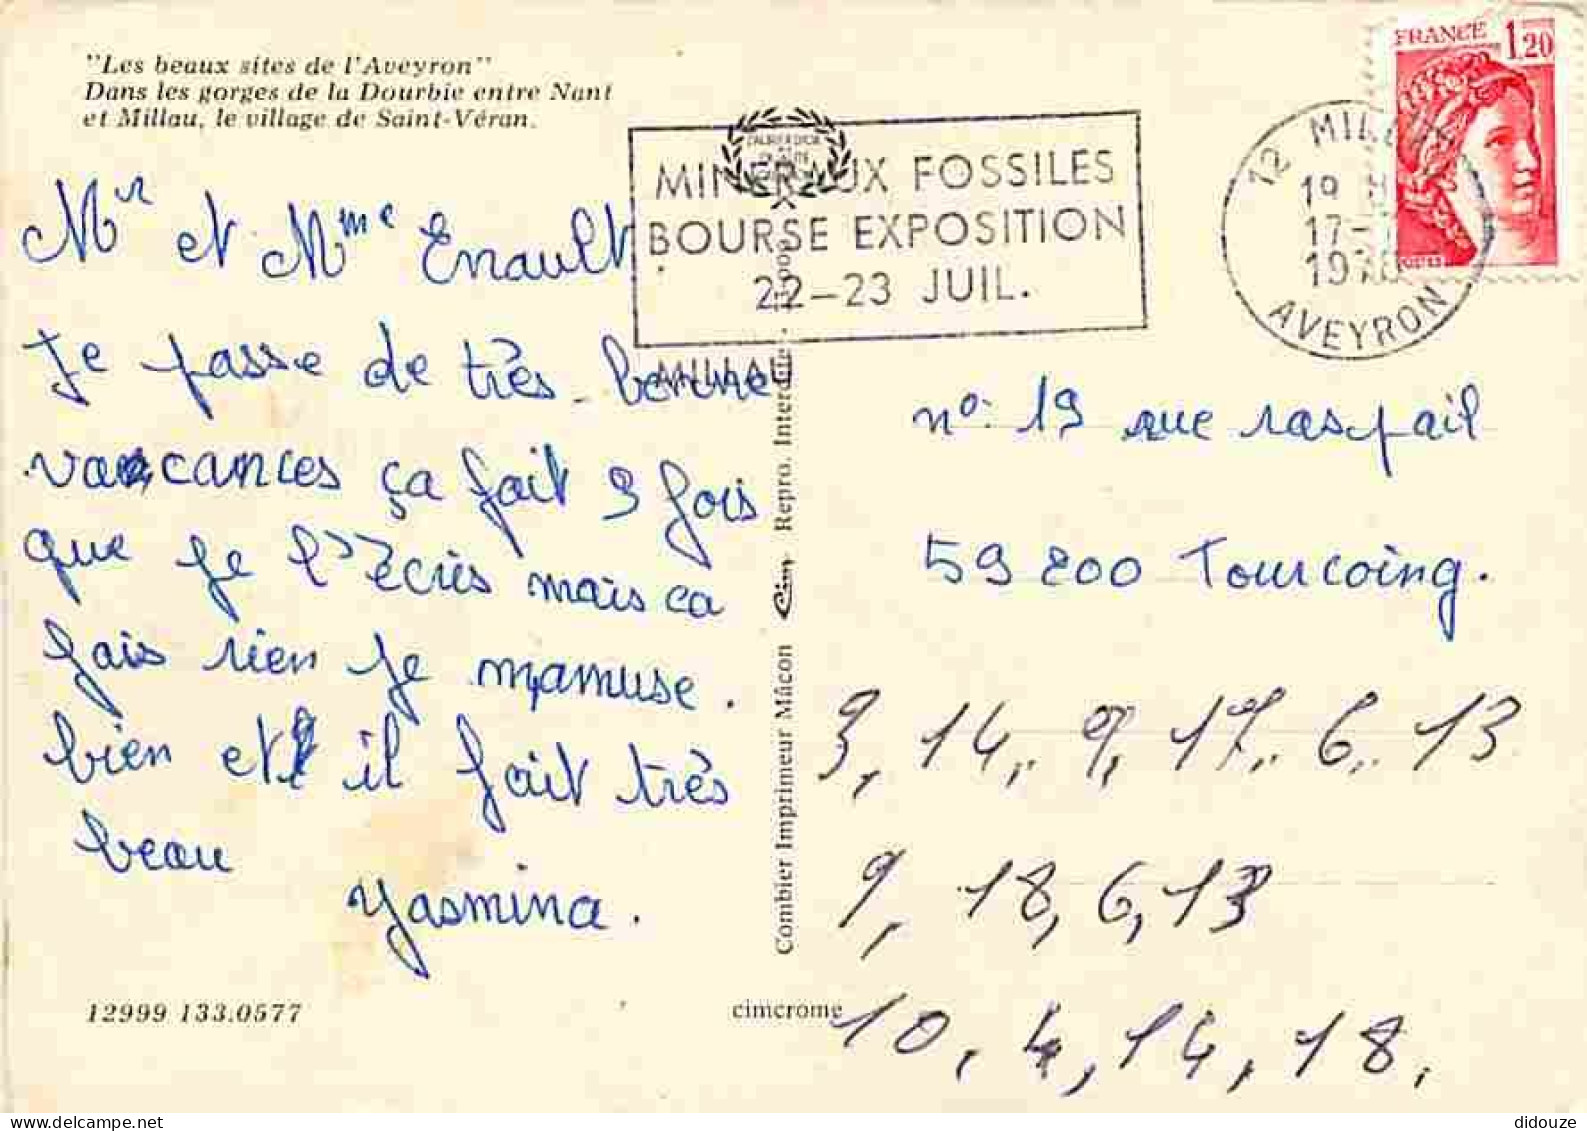 "Les beaux sites de l'Aveyron"
Dans les gorges de la Dourbie entre Nant
et Millau, le village de Saint-Véran.
Mr et Mme Enault
Je passe de très bonne
vacances ça fait 3 fois
que je l'écris mais ca
fais rien je mamuse.
bien et il fait très
beau
Yasmina.
12999 133.0577
Combier Imprimeur Mâcon Cim Repro. Interdite
cimcrome
MINERAUX FOSSILES
BOURSE EXPOSITION
22-23 JUIL.
MILLAU
12 MILLAU
19 H
17-
1978
AVEYRON
FRANCE 1,20
n° 19 rue raspail
59200 Tourcoing.
3, 14, 9, 17, 6, 13
9, 18, 6, 13
10, 4, 14, 18.
didouze